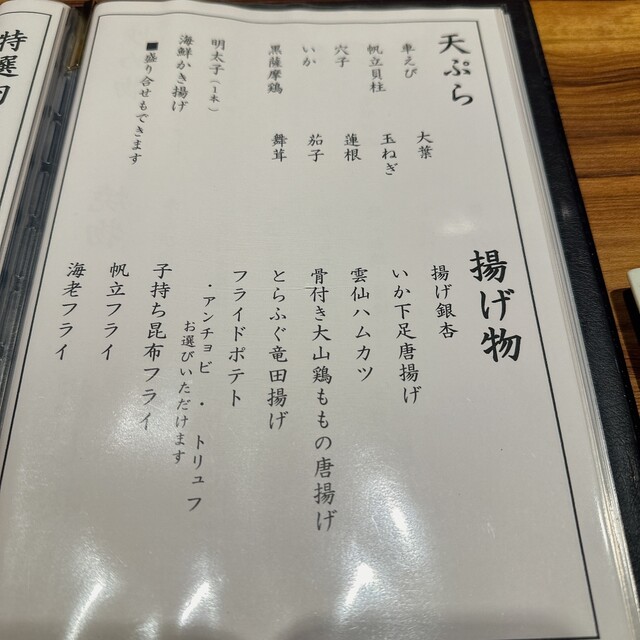 天ぷら
車えび
大葉
帆立貝柱
玉ねぎ
穴子
蓮根
いか
茄子
黒薩摩鶏
舞茸
明太子(一本)
海鮮かき揚げ
■盛り合せもできます
揚げ物
揚げ銀杏
いか下足唐揚げ
雲仙ハムカツ
骨付き大山鶏ももの唐揚げ
とらふぐ竜田揚げ
フライドポテト
・アンチョビ ・トリュフ
お選びいただけます
子持ち昆布フライ
帆立フライ
海老フライ
特選